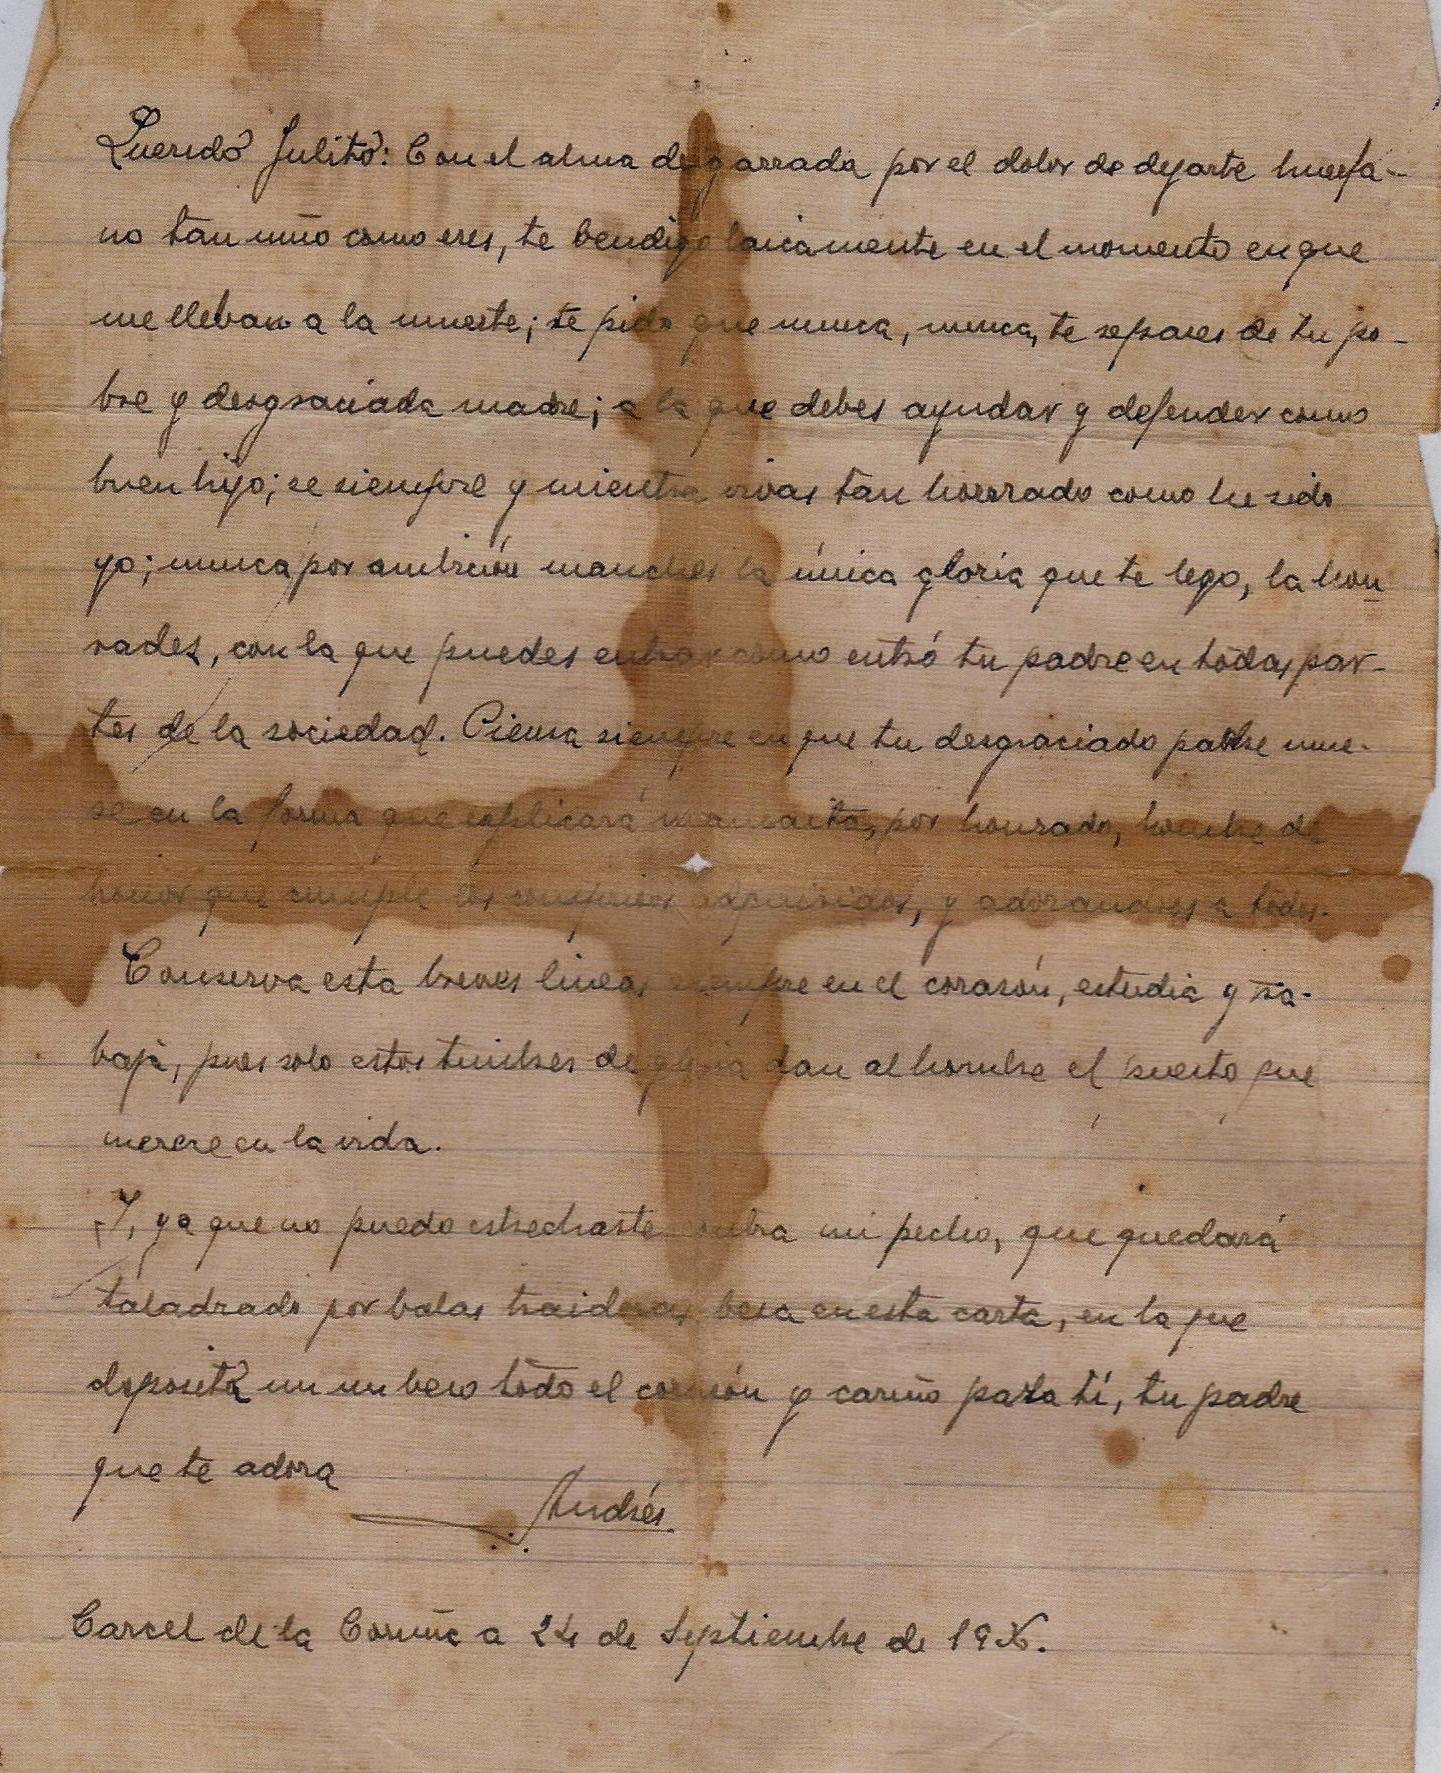 Querido Julito: Con el alma desgarrada por el dolor de dejarte huerfa-
no tan niño como eres, te bendigo laicamente en el momento en que
me lleban a la muerte; te pido que nunca, nunca, te separes de tu po-
bre y desgraciada madre; a la que debes ayudar y defender como
buen hijo; se siempre y mientra vivas tan honrrado como he sido
yo; nunca por ambición manches la única gloria que te lego, la hon-
rades, con la que puedes entrar como entró tu padre en todas par-
tes de la sociedad. Piensa siempre en que tu desgraciado padre mue-
re en la forma que esplicará mamaita, por honrado, hombre de
honor que cumple los compromisos adquiridos, y adorandoos a todos.
Conserva esta breves lineas siempre en el corasón, estudia y tra-
baja, pues solo estos timbres de gloria dan al hombre el puesto que
merece en la vida.
Y, ya que no puedo estrecharte contra mi pecho, que quedará
taladrado por balas traidoras besa en esta carta, en la que
deposita un beso todo el corasón y cariño para tí, tu padre
que te adora
Andrés.
Carcel de la Coruña a 24 de Septiembre de